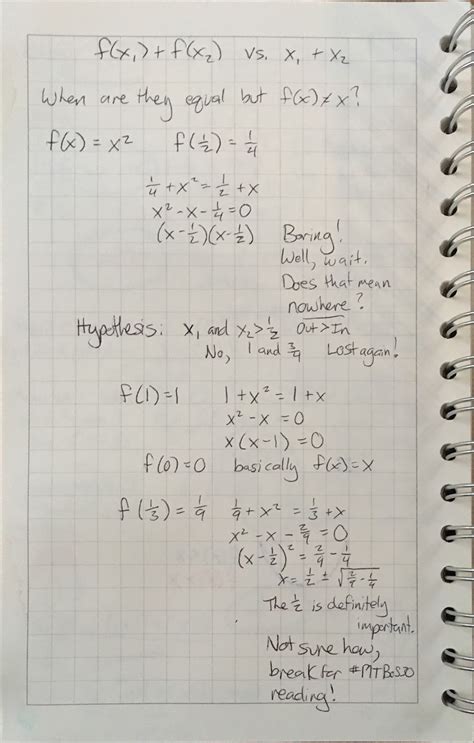 f(x₁) + f(x₂) vs. x₁ + x₂
When are they equal but f(x) ≠ x?
f(x) = x² f(½) = ¼
¼ + x² = ½ + x
x² - x - ¼ = 0
(x - ½)(x - ½) Boring!
Well, wait.
Does that mean
nowhere?
Hypothesis: x₁ and x₂ > ½ Out > In
No, 1 and 3/4 Lost again!
f(1) = 1 1 + x² = 1 + x
x² - x = 0
x(x - 1) = 0
f(0) = 0 basically f(x) = x
f(⅓) = 1/9 1/9 + x² = ⅓ + x
x² - x - 2/9 = 0
(x - ½)² = 2/9 - ¼
x = ½ ± √(2/9 - ¼)
The ½ is definitely
important.
Not sure how,
break for #MTBoS30
reading!